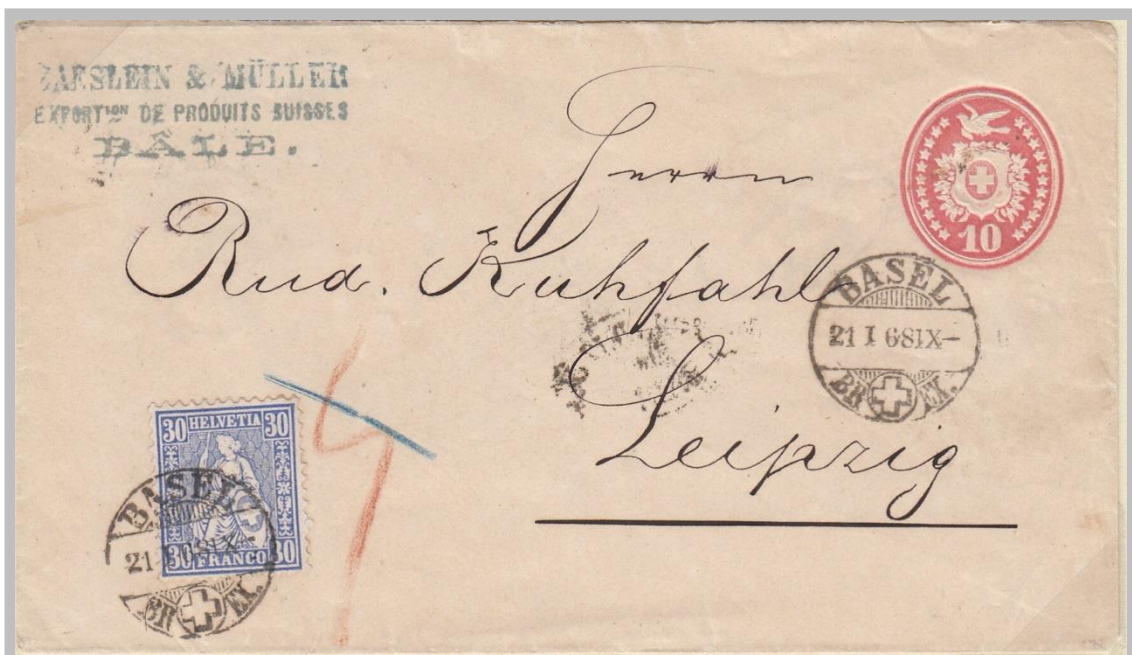 & MÜLLER
EXPORTION DE PRODUITS SUISSES
BÂLE.
10
Herrn
Rud. Kuhfahl
Leipzig
BASEL
21 I 68 IX-
BR. EX.
30 HELVETIA 30
30 FRANCO 30
BASEL
21 I 68 IX-
BR. EX.